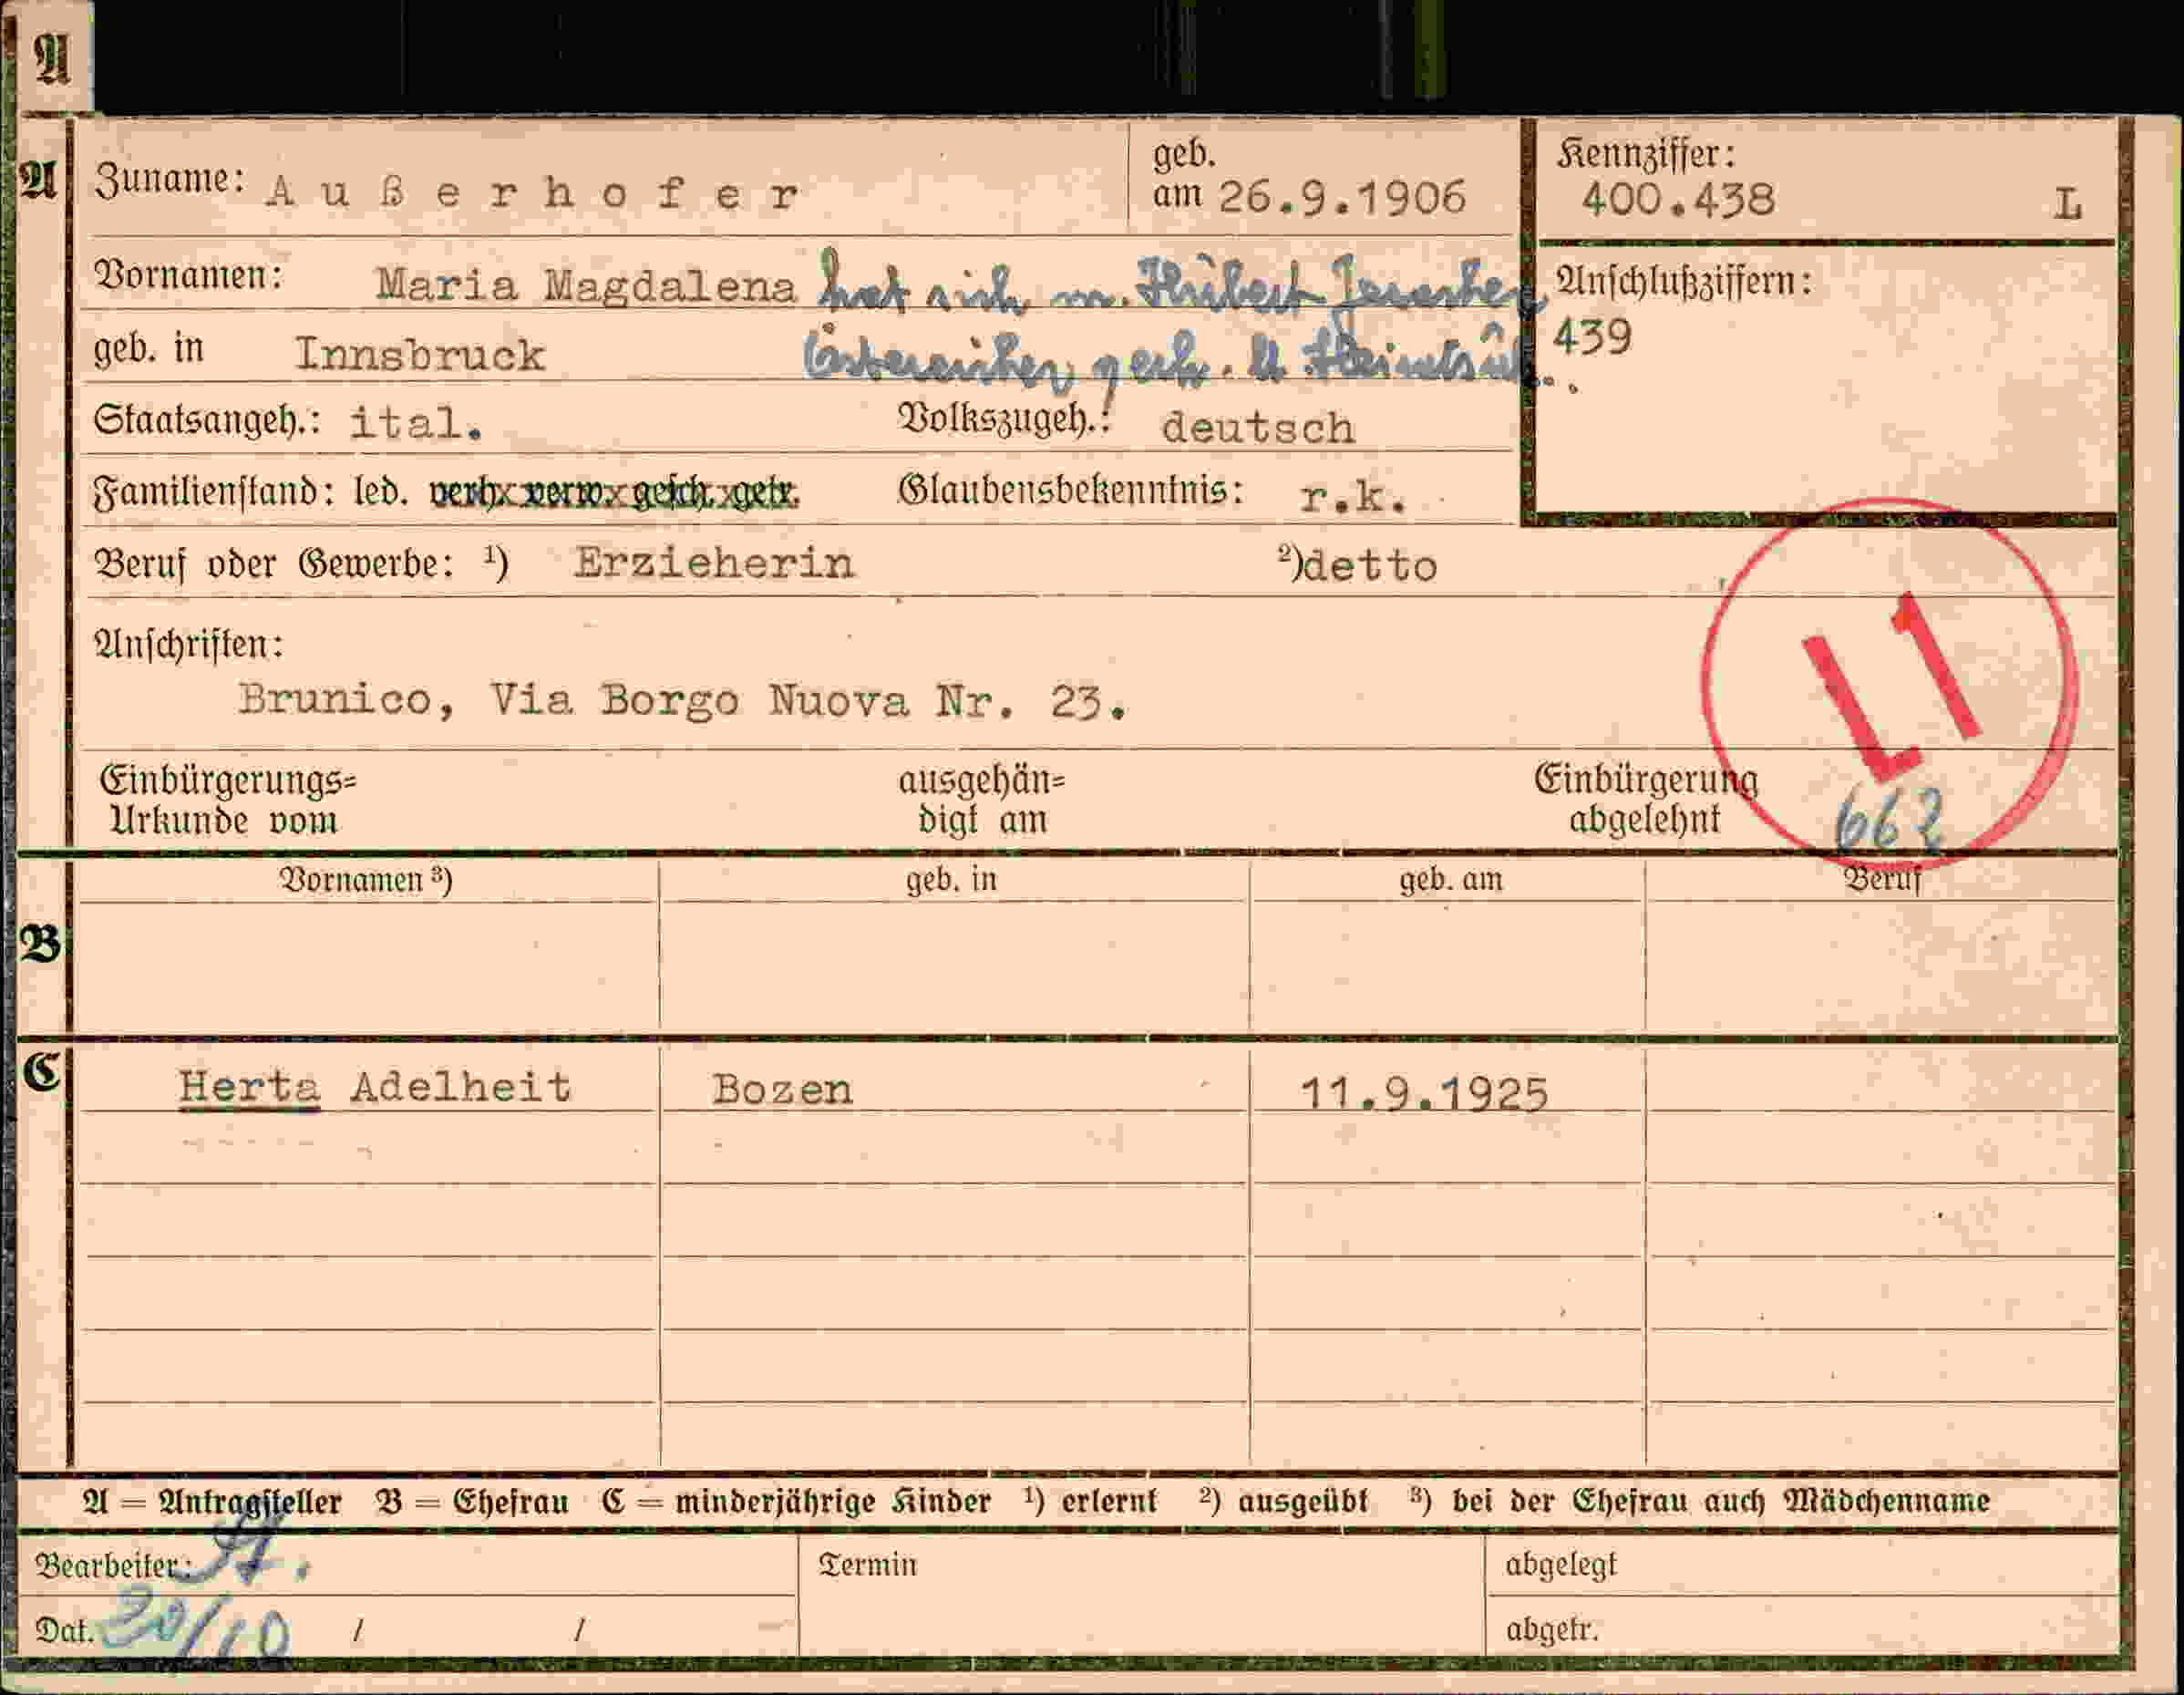 A
A
Zuname: Außerhofer
geb. am 26.9.1906
Kennziffer: 400.438 L
Vornamen: Maria Magdalena hat sich m. Hubert
Anschlußziffern:
439
geb. in Innsbruck Österreicher
Staatsangeh.: ital. Volkszugeh.: deutsch
Familienstand: led. verh. verw. gesch. getr. Glaubensbekenntnis: r.k.
Beruf oder Gewerbe: ¹) Erzieherin ²) detto
Anschriften:
Brunico, Via Borgo Nuova Nr. 23.
L1
662
Einbürgerungs=
Urkunde vom
ausgehän=
digt am
Einbürgerung
abgelehnt
Vornamen ³) geb. in geb. am Beruf
B
C
Herta Adelheit Bozen 11.9.1925
A = Antragsteller B = Ehefrau C = minderjährige Kinder ¹) erlernt ²) ausgeübt ³) bei der Ehefrau auch Mädchenname
Bearbeiter: Termin abgelegt
Dat. 30/10 / / abgetr.